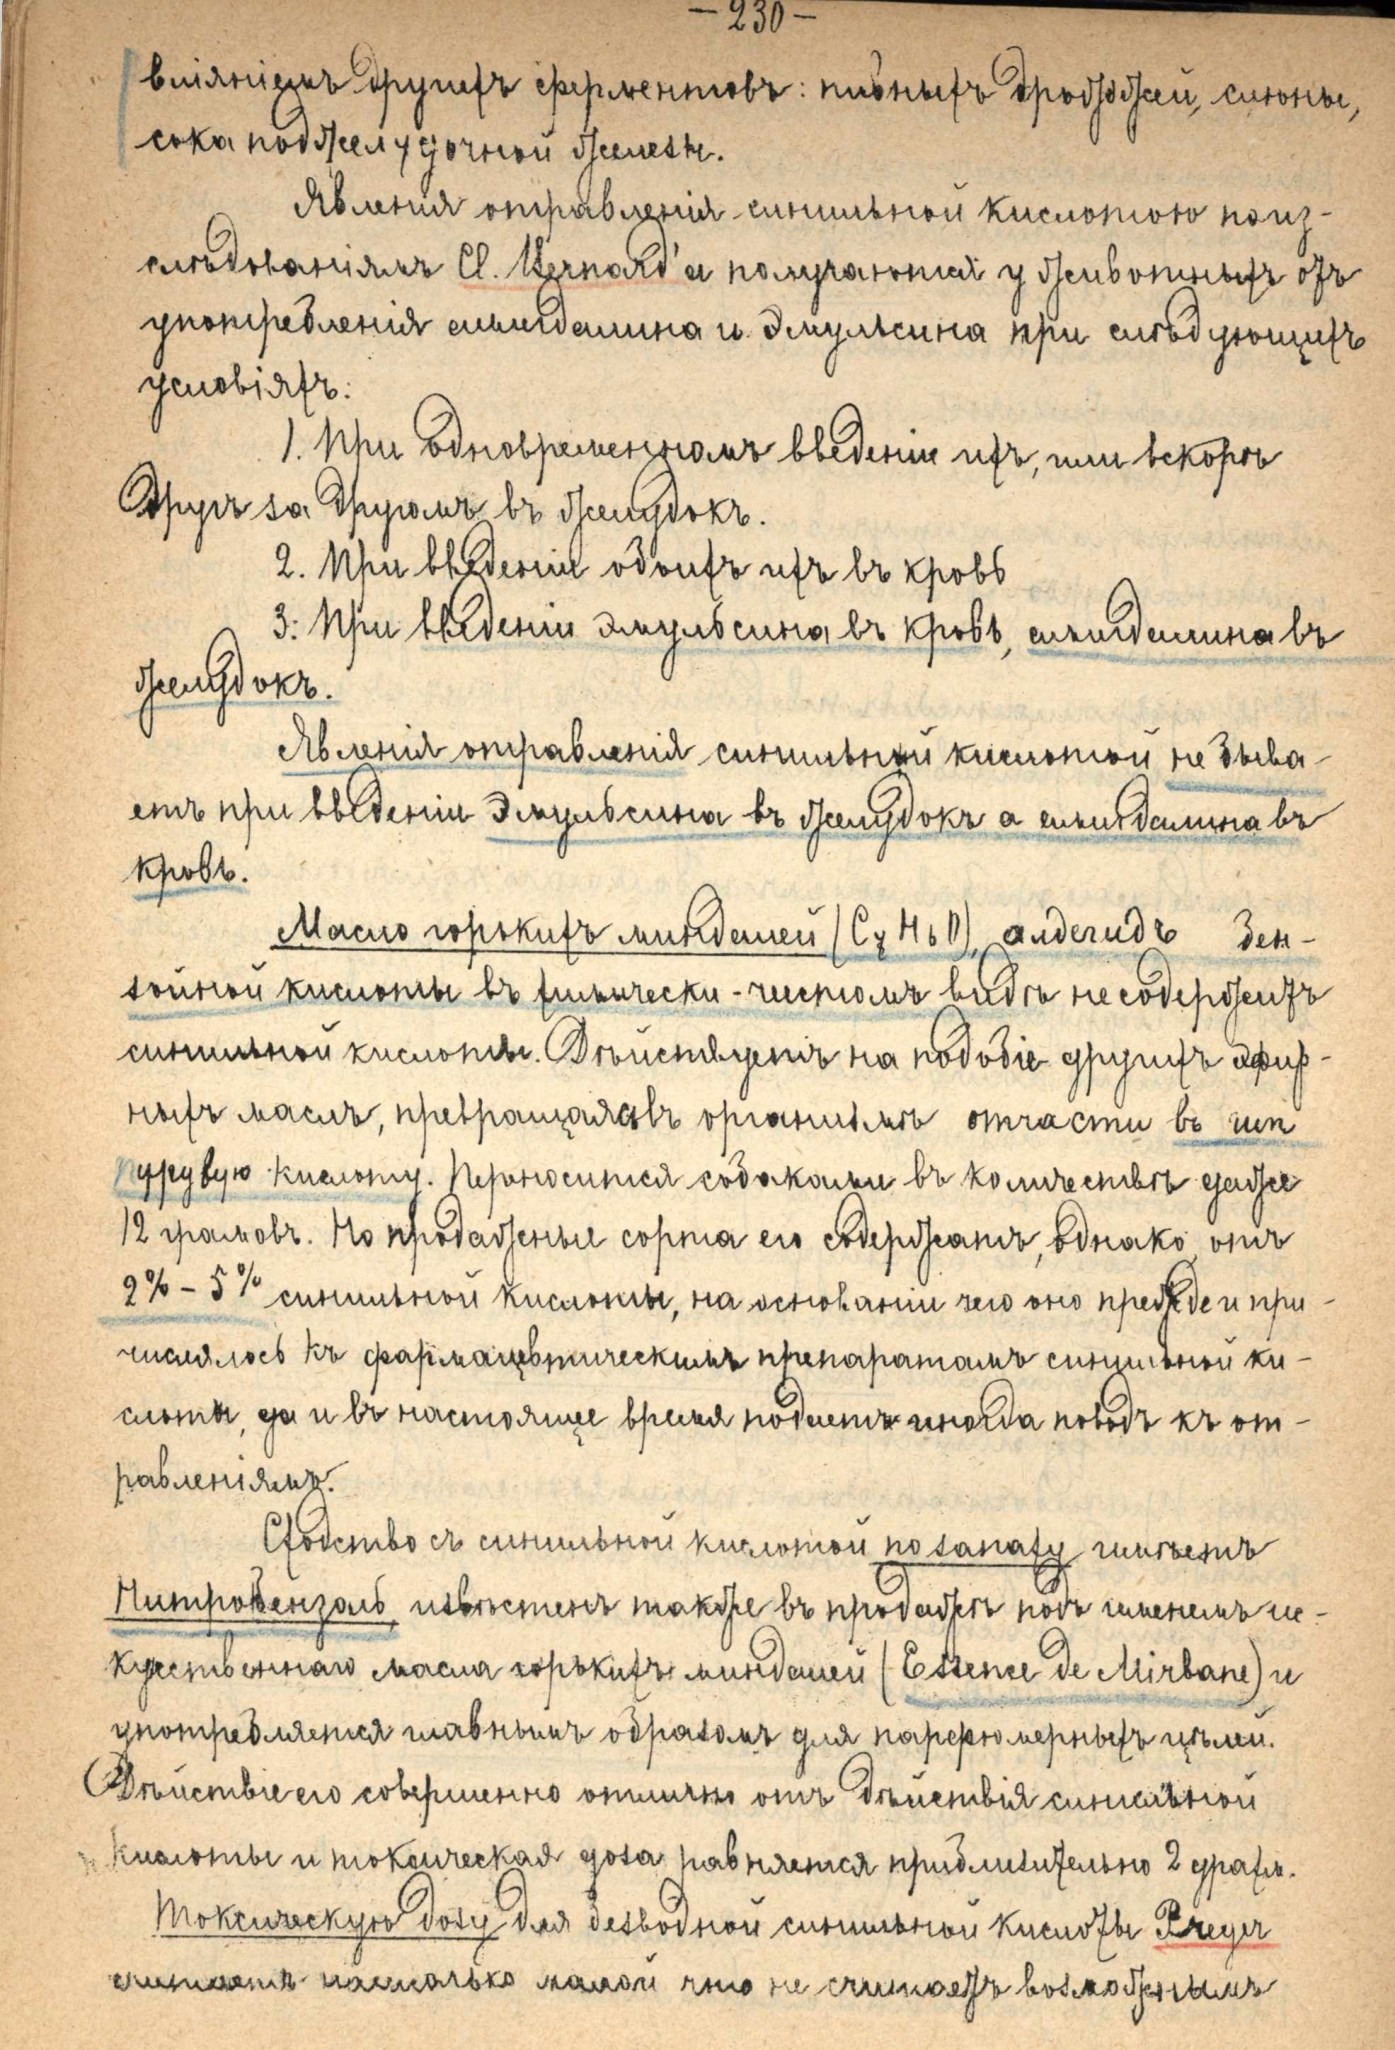 — 230 —
вліяніемъ другихъ ферментовъ: пивныхъ дрожжей, слюны,
сока поджелудочной железы.
Явленія отравленія синильной кислотою по из-
слѣдованіямъ Cl. Bernard'а получаются у животныхъ отъ
употребленія амигдалина и эмульсина при слѣдующихъ
условіяхъ:
1. При одновременномъ введеніи ихъ, или вскорѣ
другъ за другомъ въ желудокъ.
2. При введеніи обоихъ ихъ въ кровь
3: При введеніи эмульсина въ кровь, амигдалина въ
желудокъ.
Явленія отравленія синильной кислотой не быва-
етъ при введеніи эмульсина въ желудокъ а амигдалина въ
кровь.
Масло горькихъ миндалей (C7H6O), алдегидъ бен-
зойной кислоты въ химически-чистомъ видѣ не содержитъ
синильной кислоты. Дѣйствуетъ на подобіе другихъ эфир-
ныхъ маслъ, превращаясь въ организмѣ отчасти въ гип
пуровую кислоту. Переносится собаками въ количествѣ даже
12 грамовъ. Но продажные сорта его содержатъ, однако, отъ
2% – 5% синильной кислоты, на основаніи чего оно прежде и при-
числялось къ фармацевтическимъ препаратамъ синильной ки-
слоты, да и въ настоящее время подаетъ иногда поводъ къ от-
равленіямъ.
Сходство съ синильной кислотой по запаху имѣетъ
Нитробензолъ извѣстенъ также въ продажѣ подъ именемъ ис-
кусственнаго масла горькихъ миндалей (Essence de Mirbane) и
употребляется главнымъ образомъ для парфюмерныхъ цѣлей.
Дѣйствіе его совершенно отлично отъ дѣйствія синильной
кислоты и токсическая доза равняется приблизительно 2 драхм.
Токсическую дозу для безводной синильной кислоты Preyer
считаетъ настолько малой что не считаетъ возможнымъ